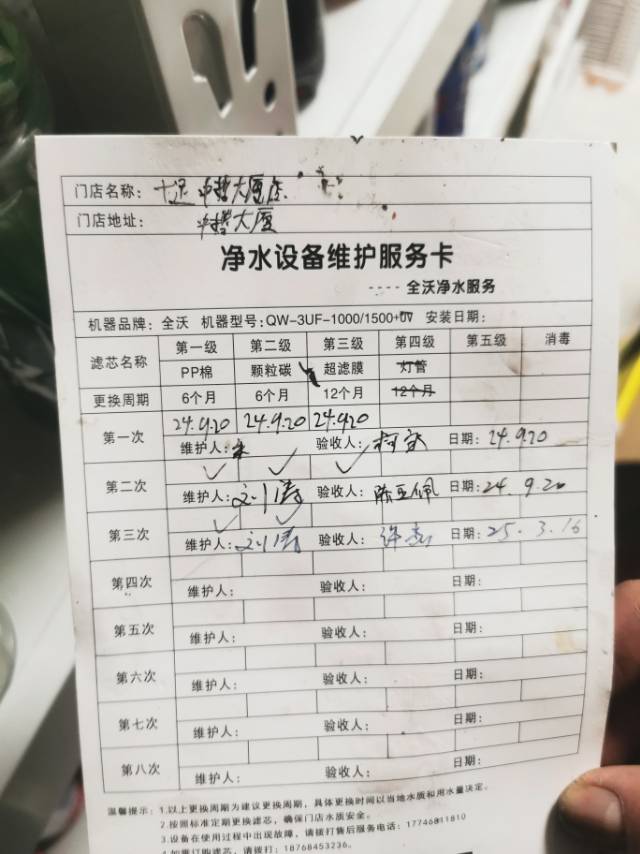 门店名称: 十足 中楷大厦店
门店地址: 中楷大厦
净水设备维护服务卡
---- 全沃净水服务
机器品牌: 全沃 机器型号:QW-3UF-1000/1500+UV 安装日期:
滤芯名称 第一级 第二级 第三级 第四级 第五级 消毒
PP棉 颗粒碳 超滤膜 灯管
更换周期 6个月 6个月 12个月 12个月
24.9.20 24.9.20 24.9.20
第一次 维护人: 验收人: 日期: 24.9.20
第二次 维护人: 刘涛 验收人: 陈亚佩 日期: 24.9.20
第三次 维护人: 刘涛 验收人: 日期: 25.3.16
第四次 维护人: 验收人: 日期:
第五次 维护人: 验收人: 日期:
第六次 维护人: 验收人: 日期:
第七次 维护人: 验收人: 日期:
第八次 维护人: 验收人: 日期:
温馨提示: 1.以上更换周期为建议更换周期，具体更换时间以当地水质和用水量决定。
2.按照标准定期更换滤芯，确保门店水质安全。
3.设备在使用过程中出现故障，请拨打售后服务电话: 17746811810
4.如需订购滤芯，请拨打: 18768453236。